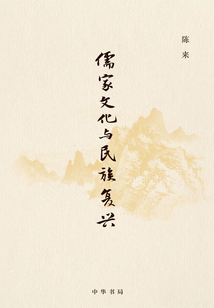 陈来
儒家文化与民族复兴
中华书局